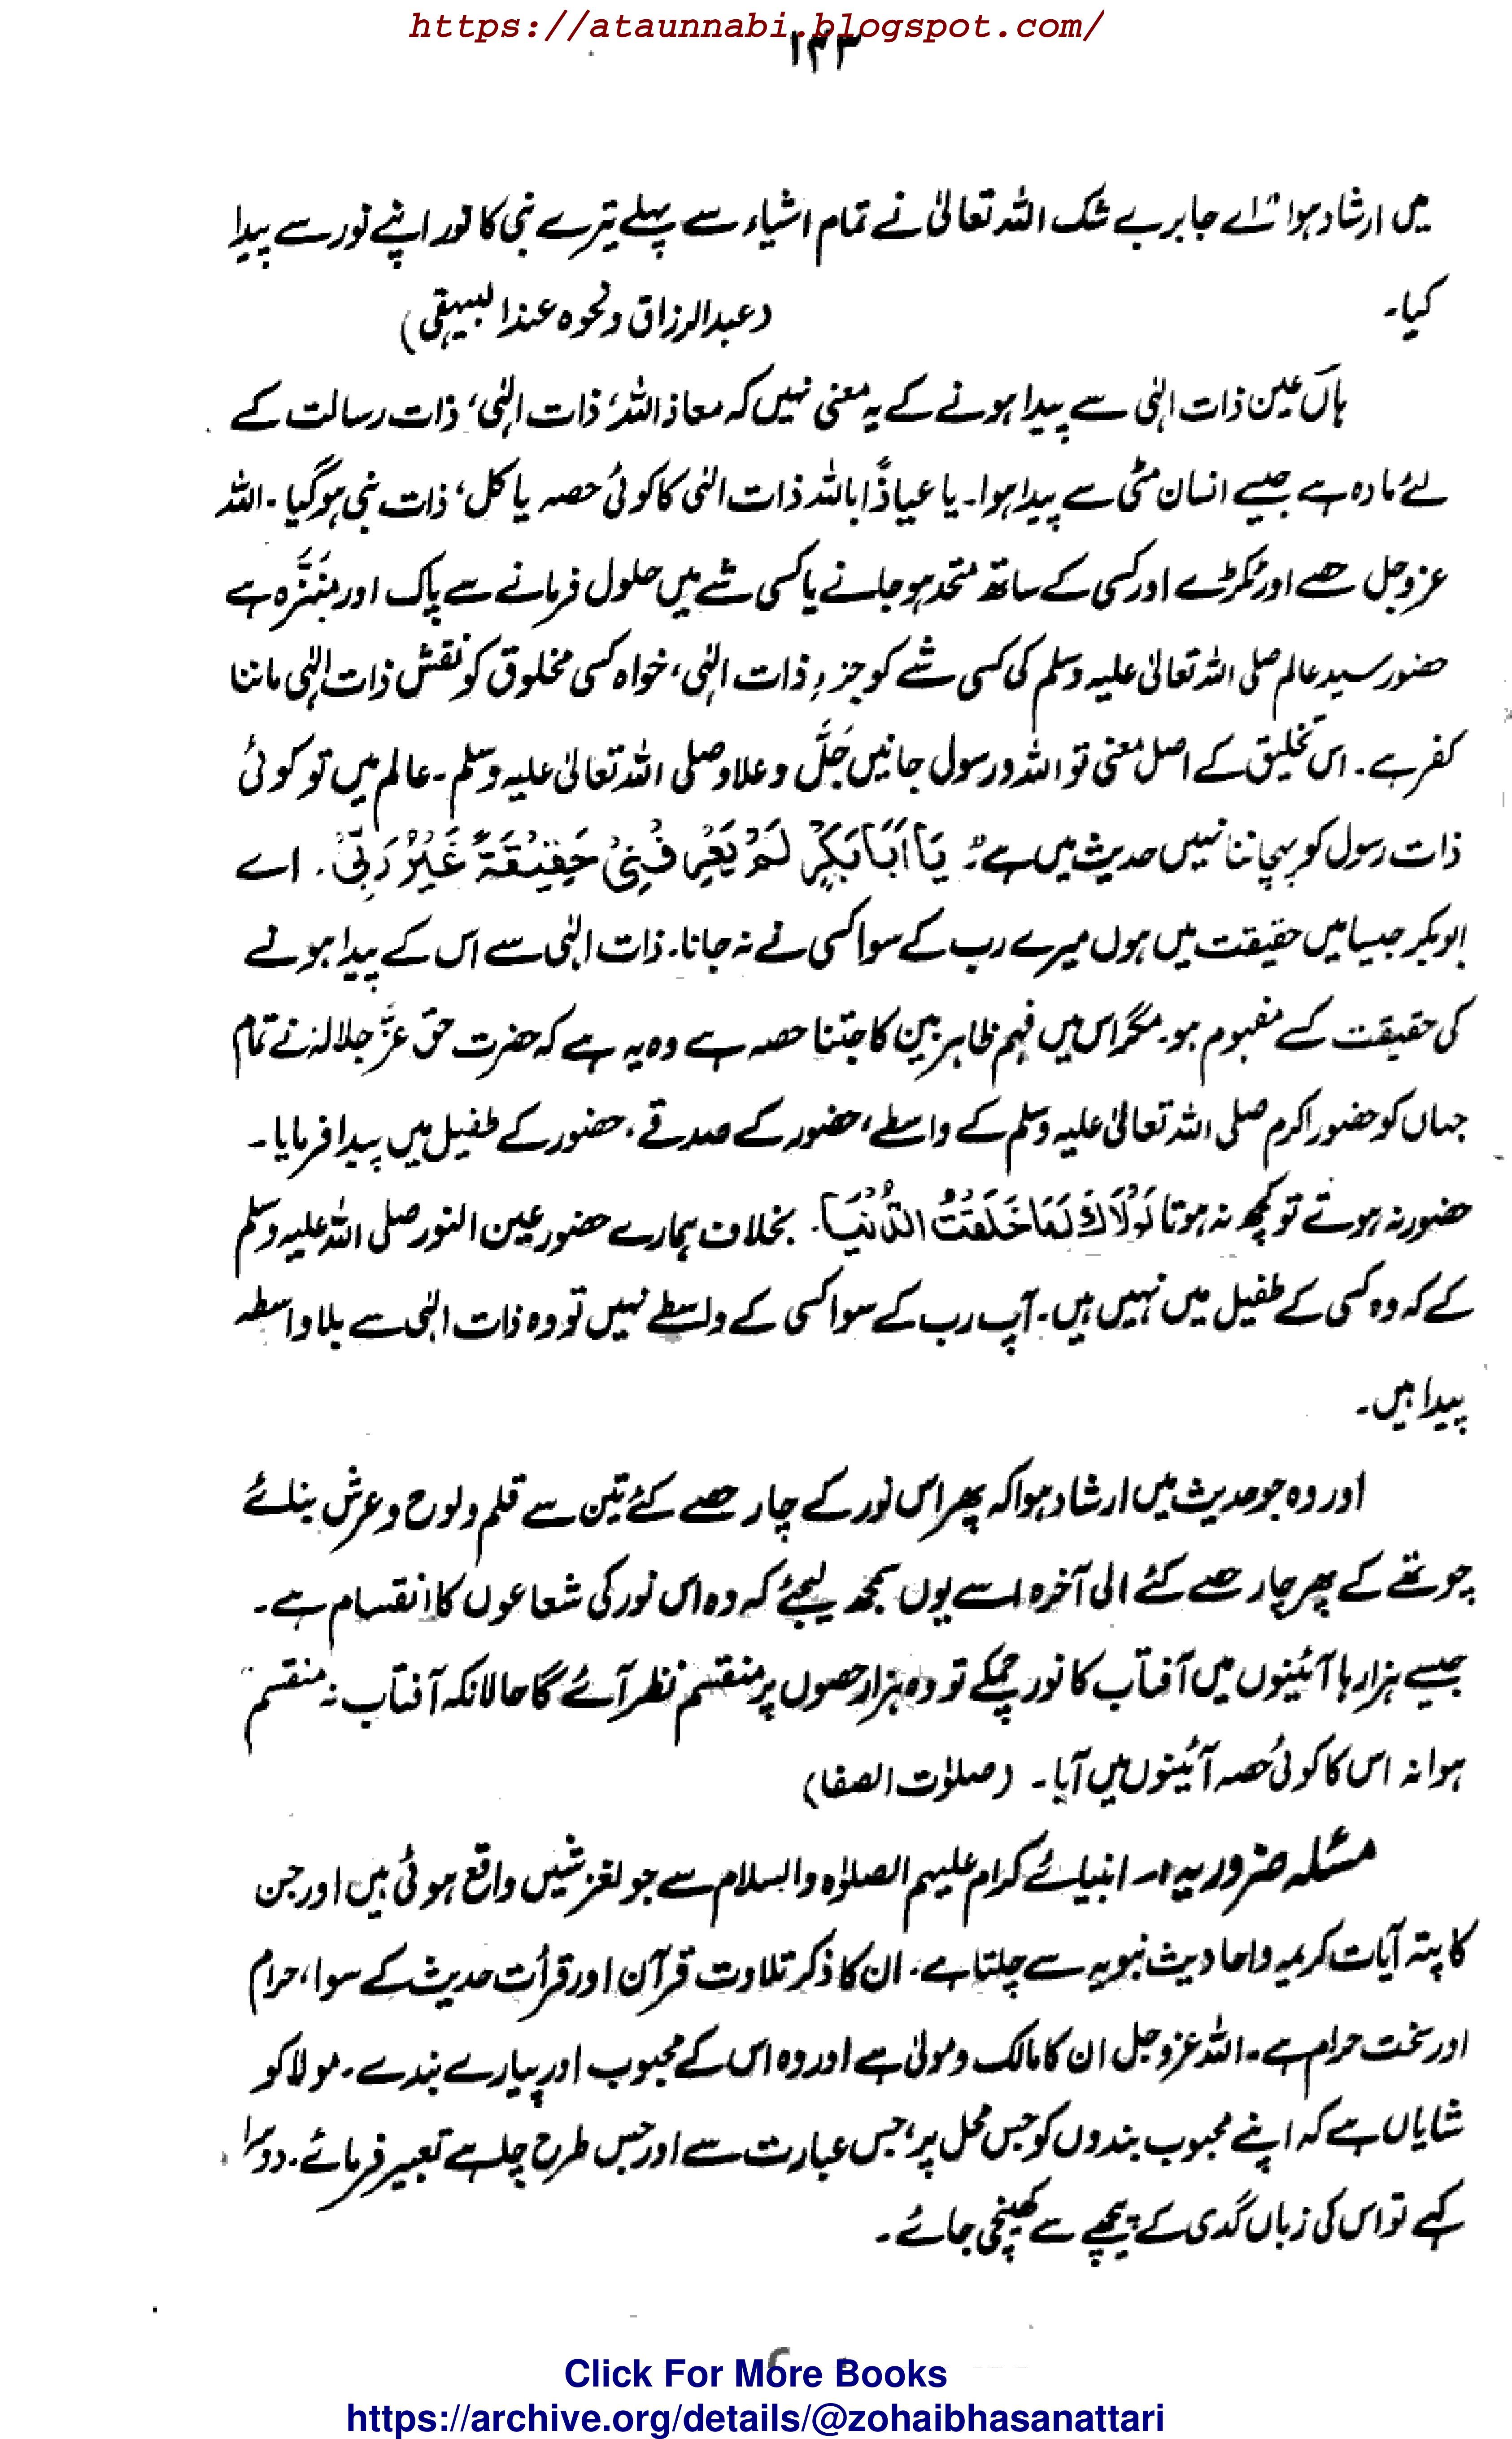 https://ataunnabi.blogspot.com/
۱۴۳
میں ارشاد ہوا "اے جابر بے شک اللہ تعالیٰ نے تمام اشیاء سے پہلے تیرے نبی کا نور اپنے نور سے پیدا
کیا۔ (عبدالرزاق ونحوہ عندالبیہقی)
ہاں عین ذات الٰہی سے پیدا ہونے کے یہ معنی نہیں کہ معاذ اللہ، ذات الٰہی، ذات رسالت کے
لئے مادہ ہے جیسے انسان مٹی سے پیدا ہوا۔ یا عیاذًا باللہ ذات الٰہی کا کوئی حصہ یا کل، ذات نبی ہوگیا۔ اللہ
عزوجل حصے اور ٹکڑے اور کسی کے ساتھ متحد ہوجانے یا کسی شے میں حلول فرمانے سے پاک اور منَزَّہ ہے
حضور سید عالم صلی اللہ تعالیٰ علیہ وسلم کی کسی شے کو جزءِ ذات الٰہی، خواہ کسی مخلوق کو نقش ذات الٰہی ماننا
کفر ہے۔ اس تخلیق کے اصل معنی تو اللہ و رسول جانیں جَلَّ وعلا وصلی اللہ تعالیٰ علیہ وسلم۔ عالم میں تو کوئی
ذات رسول کو پہچانتا نہیں حدیث میں ہے: یَا اَبَا بَکْرٍ لَمْ یَعْرِفْنِیْ حَقِیْقَۃً غَیْرُ رَبِّیْ۔ اے
ابوبکر جیسا میں حقیقت میں ہوں میرے رب کے سوا کسی نے نہ جانا۔ ذات الٰہی سے اس کے پیدا ہونے
کی حقیقت کسے مفہوم ہو۔ مگر اس میں فہم ظاہر بین کا جتنا حصہ ہے وہ یہ ہے کہ حضرت حق عَزَّ جلالہٗ نے تمام
جہاں کو حضور اکرم صلی اللہ تعالیٰ علیہ وسلم کے واسطے، حضور کے صدقے، حضور کے طفیل میں پیدا فرمایا۔
حضور نہ ہوتے تو کچھ نہ ہوتا لَوْلَاکَ لَمَا خَلَقْتُ الدُّنْیَا۔ بخلاف ہمارے حضور عین النور صلی اللہ علیہ وسلم
کے کہ وہ کسی کے طفیل میں نہیں ہیں۔ آپ رب کے سوا کسی کے واسطے نہیں تو وہ ذات الٰہی سے بلاواسطہ
پیدا ہیں۔
اور وہ جو حدیث میں ارشاد ہوا کہ پھر اس نور کے چار حصے کئے تین سے قلم و لوح و عرش بنائے
چوتھے کے پھر چار حصے کئے الی آخرہ اسے یوں سمجھ لیجئے کہ وہ اس نور کی شعاعوں کا انقسام ہے۔
جیسے ہزارہا آئینوں میں آفتاب کا نور چمکے تو وہ ہزار حصوں پر منقسم نظر آئے گا حالانکہ آفتاب نہ منقسم
ہوا نہ اس کا کوئی حصہ آئینوں میں آیا۔ (صلوٰت الصفا)
مسئلہ ضروریہ:۔ انبیائے کرام علیہم الصلوٰۃ والسلام سے جو لغزشیں واقع ہوئی ہیں اور جن
کا پتہ آیات کریمہ و احادیث نبویہ سے چلتا ہے۔ ان کا ذکر تلاوت قرآن اور قرأت حدیث کے سوا، حرام
اور سخت حرام ہے۔ اللہ عزوجل ان کا مالک و مولیٰ ہے اور وہ اس کے محبوب اور پیارے بندے۔ مولا کو
شایاں ہے کہ اپنے محبوب بندوں کو جس محل پر، جس عبارت سے اور جس طرح چاہے تعبیر فرمائے۔ دوسرا
کہے تو اس کی زباں گدی کے پیچھے سے کھینچی جائے۔
Click For More Books
https://archive.org/details/@zohaibhasanattari